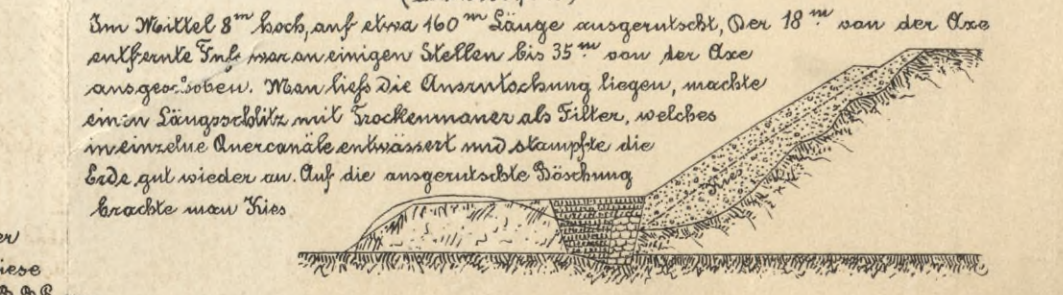 Im Mittel 8ᵐ hoch, auf etwa 160ᵐ Länge ausgerutscht, Der 18ᵐ von der Axe
entfernte Fuß war an einigen Stellen bis 35ᵐ von der Axe
ausgeschoben. Man ließ die Ausrutschung liegen, machte
einen Längsschlitz mit Trockenmauer als Filter, welches
in einzelne Quercanäle entwässert und stampfte die
Erde gut wieder an. Auf die ausgerutschte Böschung
brachte man Kies
Kies
er
iese